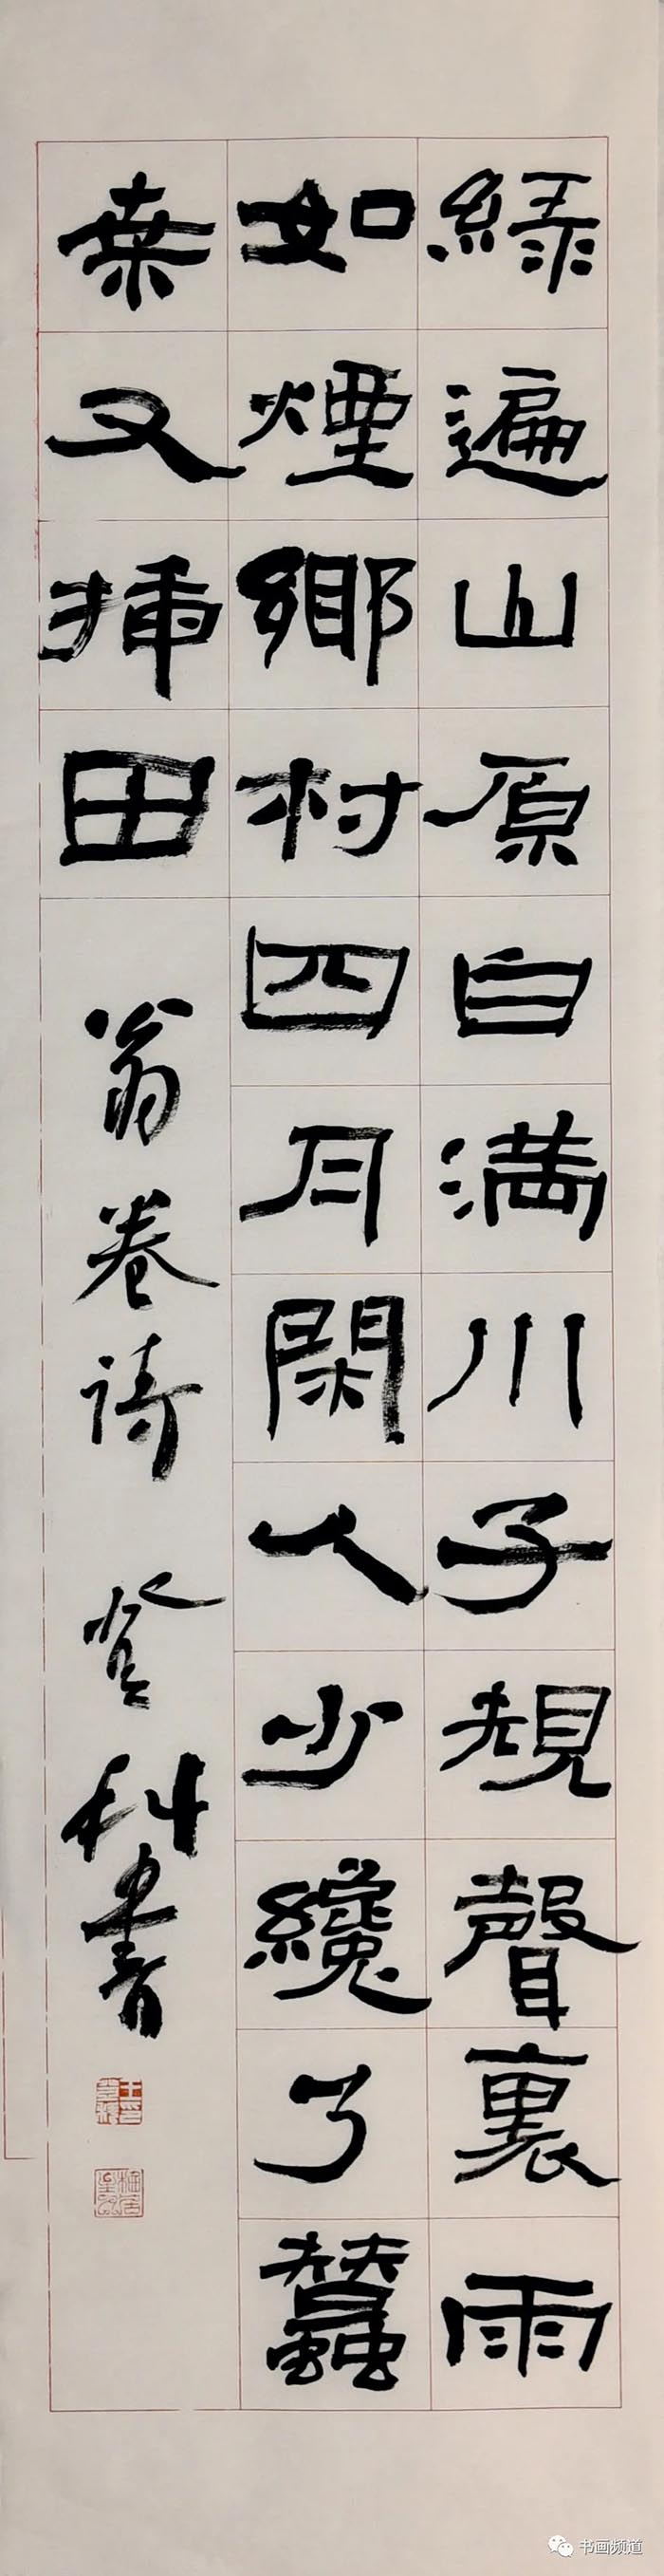 綠遍山原白滿川子規聲裏雨
如煙鄉村四月閑人少纔了蠶
桑又插田
翁卷詩 登科書
书画频道